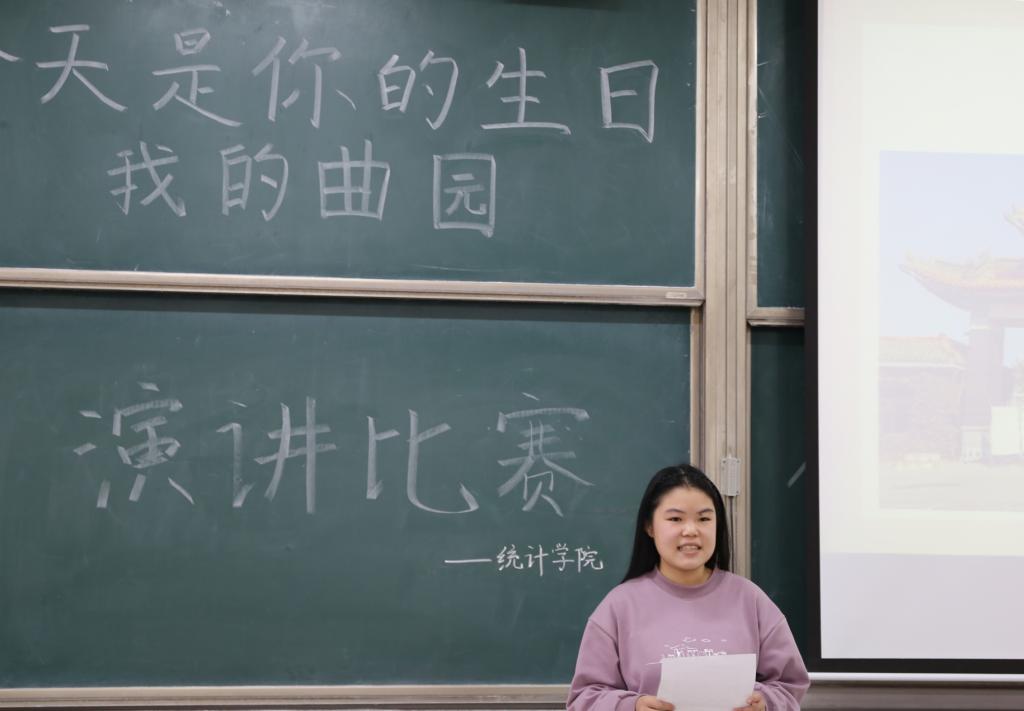 天是你的生日
我的曲园
演讲比赛
——统计学院